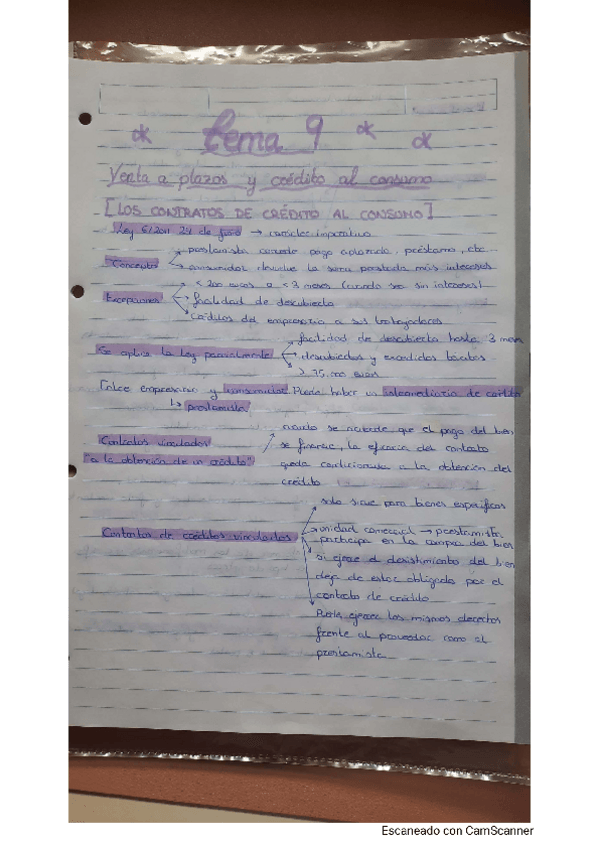 * Tema 9 * *
Venta a plazos y crédito al consumo
[LOS CONTRATOS DE CRÉDITO AL CONSUMO]
Ley 6/2011 24 de → carácter imperativo
Concepto → prestamista concede pago aplazado, préstamo, etc
→ consumidor devuelve la suma prestada más intereses
Excepciones → < 200 euros o < 3 meses (cuando sea sin intereses)
→ facilidad de descubierto
→ créditos del empresario a sus trabajadores
Se aplica la Ley parcialmente → facilidad de descubierto hasta 3 meses
→ descubiertos y excedidos tácitos
→ > 75.000 euros
Entre empresario y consumidor. Puede haber un intermediario de crédito
↳ prestamista
Contratos vinculados "a la obtención de un crédito" → cuando se acuerde que el pago del bien
se financie, la eficacia del contrato
queda condicionada a la obtención del
crédito
Contratos de créditos vinculados → solo sirve para bienes específicos
→ unidad comercial → prestamista
participa en la compra del bien
→ si ejerce el desistimiento del bien
deja de estar obligado por el
contrato de crédito
→ Puede ejercer los mismos derechos
frente al proveedor como al
prestamista
Escaneado con CamScanner